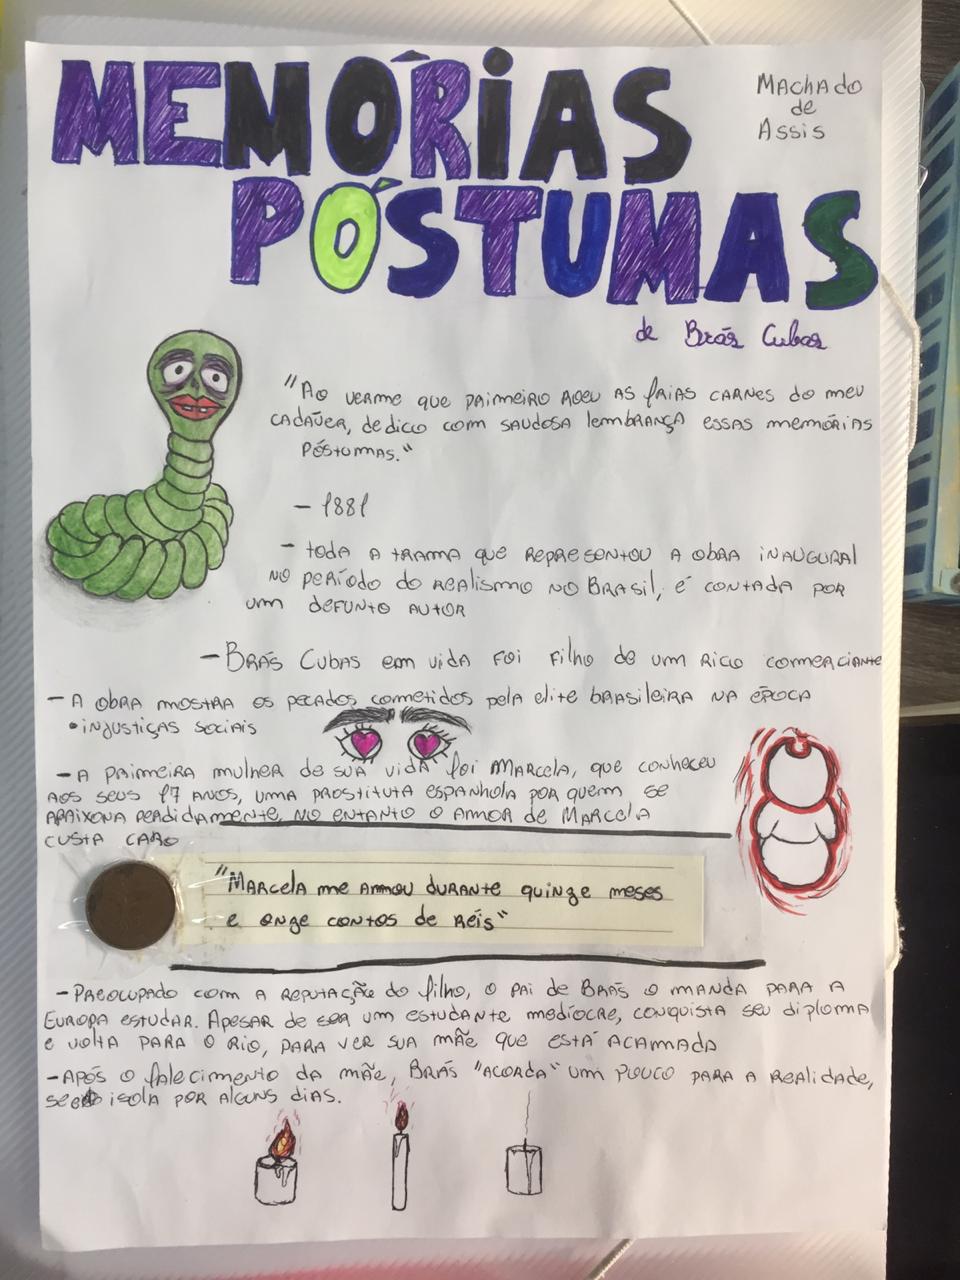 MEMÓRIAS
PÓSTUMAS
Machado
de
Assis
de Brás Cubas
"Ao verme que primeiro roeu as frias carnes do meu
cadáver, dedico com saudosa lembrança essas memórias
póstumas."
- 1881
- toda a trama que representou a obra inaugural
no período do realismo no Brasil, é contada por
um defunto autor
- Brás Cubas em vida foi filho de um rico comerciante
- A obra mostra os pecados cometidos pela elite brasileira na época
• injustiças sociais
- A primeira mulher de sua vida foi Marcela, que conheceu
aos seus 17 anos, uma prostituta espanhola por quem se
apaixona perdidamente, no entanto o amor de Marcela
custa caro
"Marcela me amou durante quinze meses
e onze contos de réis"
- Preocupado com a reputação do filho, o pai de Brás o manda para a
Europa estudar. Apesar de ser um estudante medíocre, conquista seu diploma
e volta para o Rio, para ver sua mãe que está acamada
- Após o falecimento da mãe, Brás "acorda" um pouco para a realidade,
se isola por alguns dias.